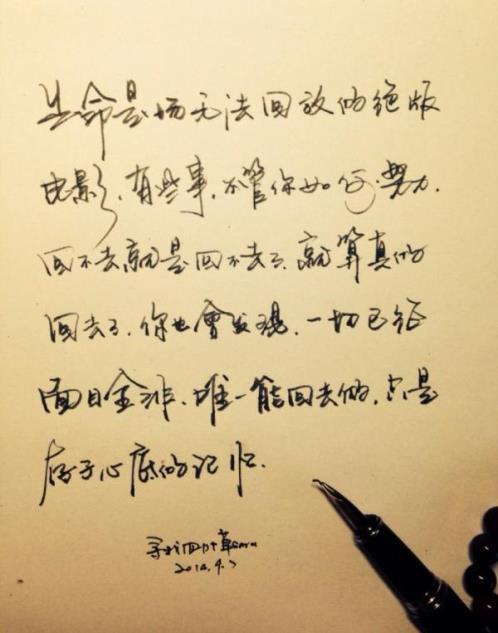 生命是场无法回放的绝版
电影，有些事，不管你如何努力，
回不去就是回不去了，就算真的
回去了，你也會发现，一切已经
面目全非，唯一能回去的，只是
存于心底的记忆.
2014.9.7